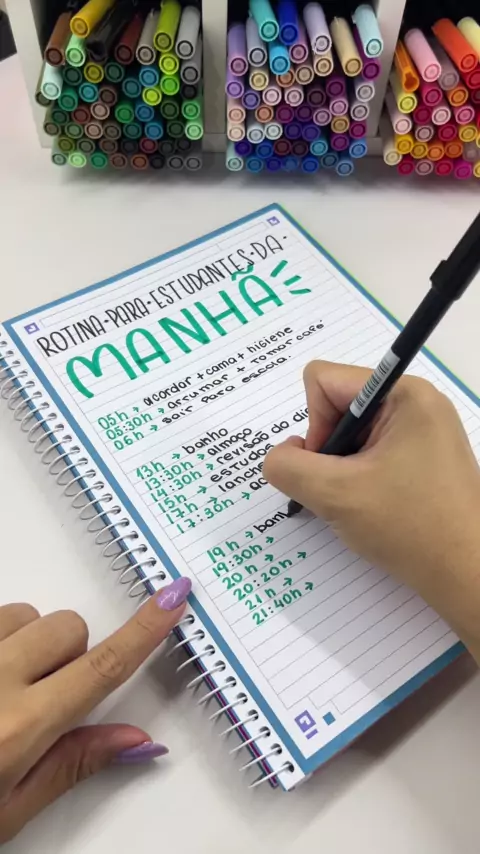 ROTINA·PARA·ESTUDANTES·DA·
MANHÃ
05h → acordar + cama + higiene
05:30h → arrumar + tomar café
06h → sair para escola.
13h → banho
13:30h → almoço
14:30h → revisão do dia
15h → estudos
17h → lanche
17:30h →
19h → banh
19:30h →
20h →
20:20h →
21h →
21:40h →